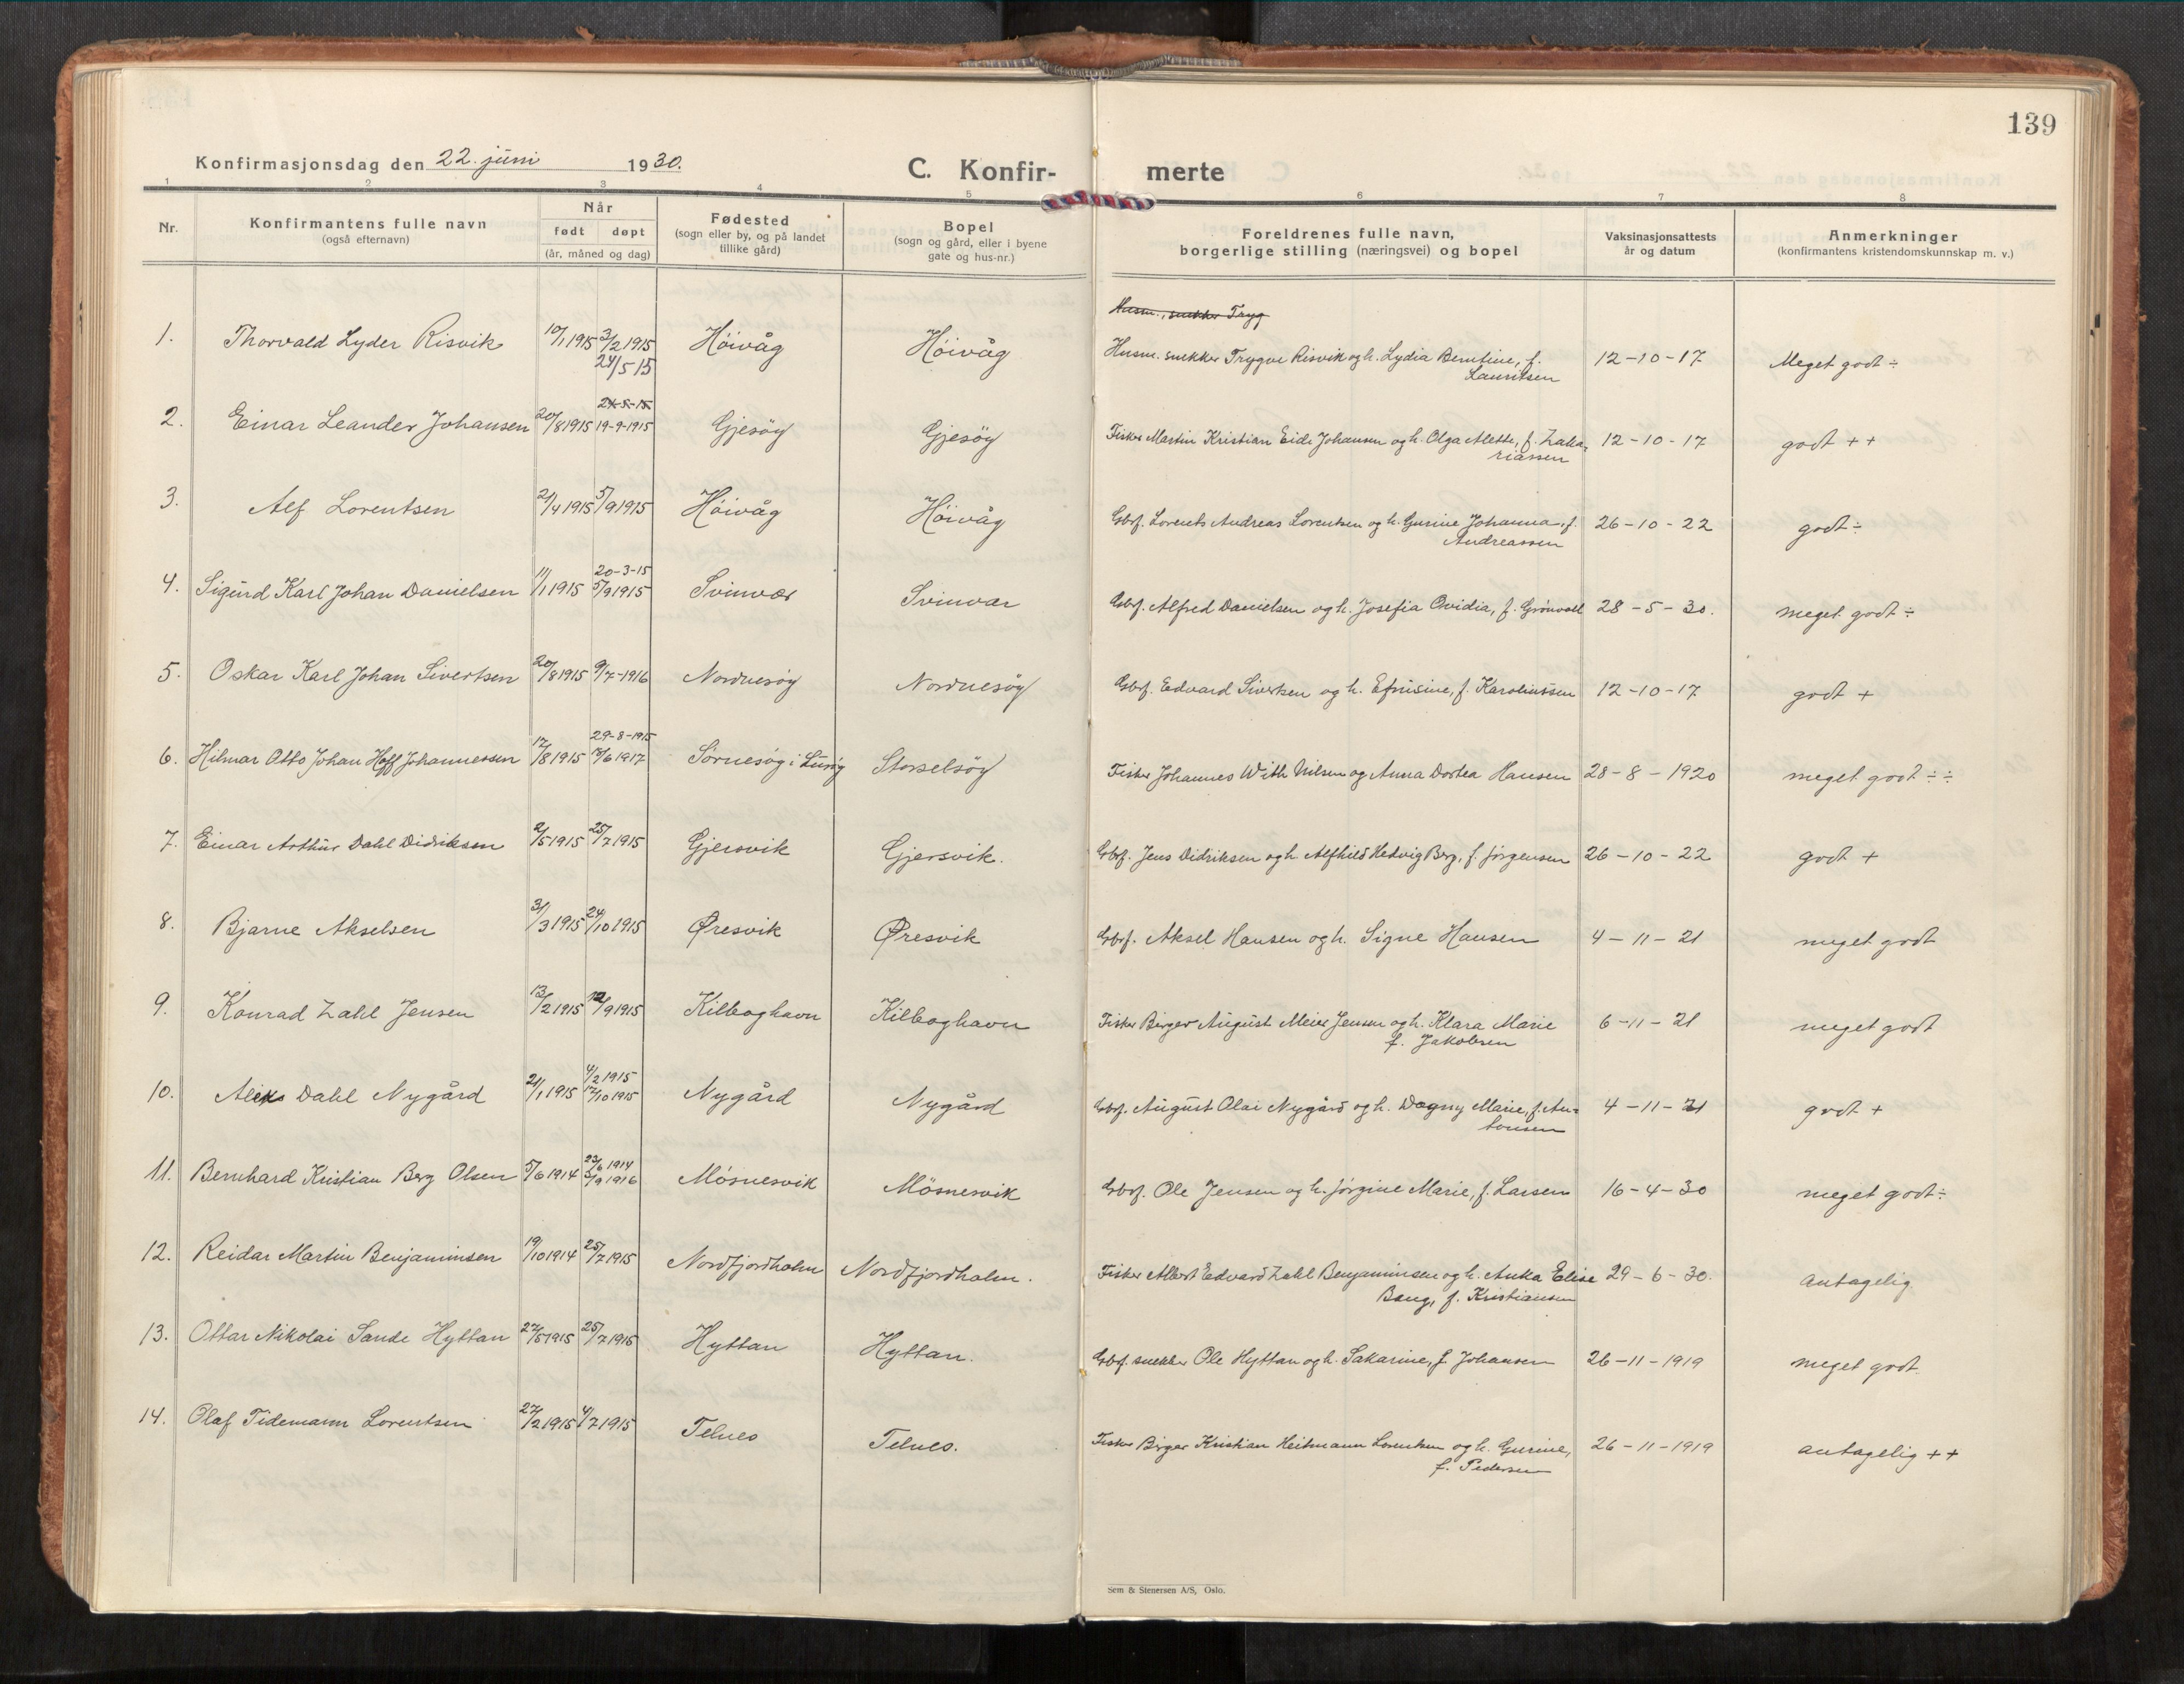 139
Konfirmasjonsdag den 22. juni 1930.
C. Konfir- merte
1 2 3 4 5 6 7 8
Nr.
Konfirmantens fulle navn
(også efternavn)
Når
født døpt
(år, måned og dag)
Fødested
(sogn eller by, og på landet
tillike gård)
Bopel
(sogn og gård, eller i byene
gate og hus-nr.)
Foreldrenes fulle navn,
borgerlige stilling (næringsvei) og bopel
Vaksinasjonsattests
år og datum
Anmerkninger
(konfirmantens kristendomskunnskap m. v.)
Husm., snekker Tryg
1. Thorvald Lyder Risvik 10/1 1915 3/2 1915 Höivåg Höivåg Husm. snekker Trygve Risvik og h. Lydia Berntine, f. 12-10-17 Meget godt ÷
24/5 15 Lauritsen
24-5-15
2. Einar Leander Johansen 20/8 1915 19-9-1915 Gjesöy Gjesöy Fisker Martin Kristian Eide Johansen og h. Olga Alette, f. Zaka- 12-10-17 godt ++
riassen
3. Alf Lorentsen 21/4 1915 5/9 1915 Höivåg Höivåg Gbrf. Lorents Andreas Lorentsen og h. Gurine Johanna, f. 26-10-22 godt ÷
Andreassen
20-3-15
4. Sigurd Karl Johan Danielsen 11/1 1915 5/9 1915 Svinvær Svinvær Gbrf. Alfred Danielsen og h. Josefia Ovidia, f. Grönvoll 28-5-30. meget godt ÷
5. Oskar Karl Johan Sivertsen 20/8 1915 9/7-1916 Nordnesöy Nordnesöy Gbrf. Edvard Sivertsen og h. Efrisine, f. Karolinssen 12-10-17 godt +
29-8-1915
6. Hilmar Otto Johan Hoff Johannessen 17/8 1915 17/6 1917 Sörnesöy i Luröy Storselsöy Fisker Johannes With Nilsen og Anna Dortea Hansen 28-8-1920 meget godt ÷÷
7. Einar Arthur Dahl Didriksen 2/5 1915 25/7 1915 Gjersvik Gjersvik. Gbrf. Jens Didriksen og h. Alfhild Hedvig Berg, f. Jörgensen 26-10-22 godt +
8. Bjarne Akselsen 31/3 1915 24/10 1915 Øresvik Øresvik Gbrf. Aksel Hansen og h. Signe Hansen 4-11-21 meget godt
9. Konrad Zahl Jensen 13/2 1915 12/9 1915 Kilboghavn Kilboghavn Fisker Birger August Meier Jensen og h. Klara Marie 6-11-21 meget godt
f. Jakobsen
4/2 1915
10. Aleks Dahl Nygård 21/1 1915 17/10 1915 Nygård Nygård Gbrf. August Olai Nygård og h. Dagny Marie, f. An- 4-11-21 godt +
tonsen
23/6 1914
11. Bernhard Kristian Berg Olsen 5/6 1914 3/9 1916 Mösnesvik Mösnesvik Gbrf. Ole Jensen og h. Jörgine Marie, f. Larsen 16-4-30 meget godt ÷
12. Reidar Martin Benjaminsen 19/10 1914 25/7 1915 Nordfjordholm Nordfjordholm. Fisker Albert Edvard Zahl Benjaminsen og h. Anka Elise 29-6-30. antagelig
Bang, f. Kristiansen
13. Ottar Nikolai Sande Hyttan 27/5 1915 25/7 1915 Hyttan Hyttan. Gbrf. snekker Ole Hyttan og h. Sakarine, f. Johansen 26-11-1919 meget godt.
14. Olaf Tidemann Lorentsen 27/2 1915 4/7 1915 Telnes Telnes. Fisker Birger Kristian Heitmann Lorentsen og h. Gurine, 26-11-1919 antagelig ++
f. Pedersen
Sem & Stenersen A/S, Oslo.